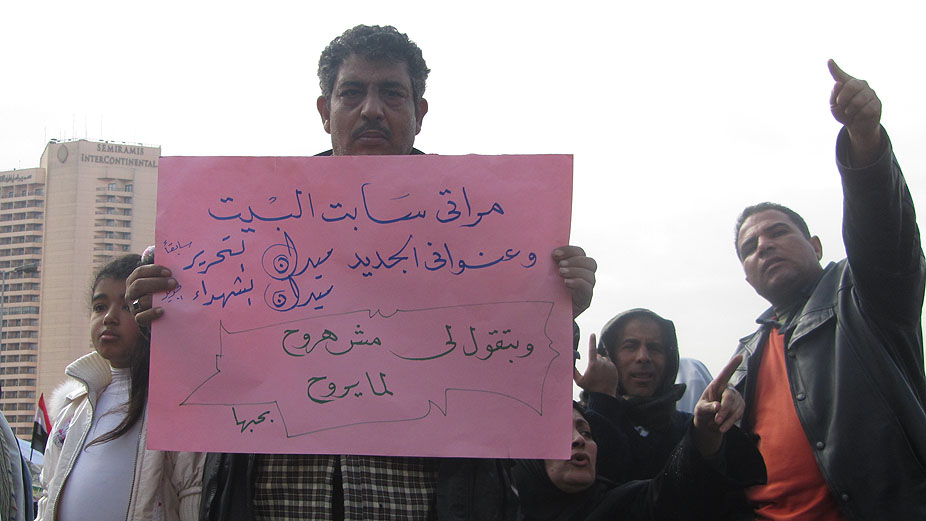 SEMIRAMIS
INTERCONTINENTAL
مراتى سابت البيت
وعنوانى الجديد ميدان التحرير سابقاً
ميدان الشهداء
وبتقول لى مش هروح
لما يروح
بحبها